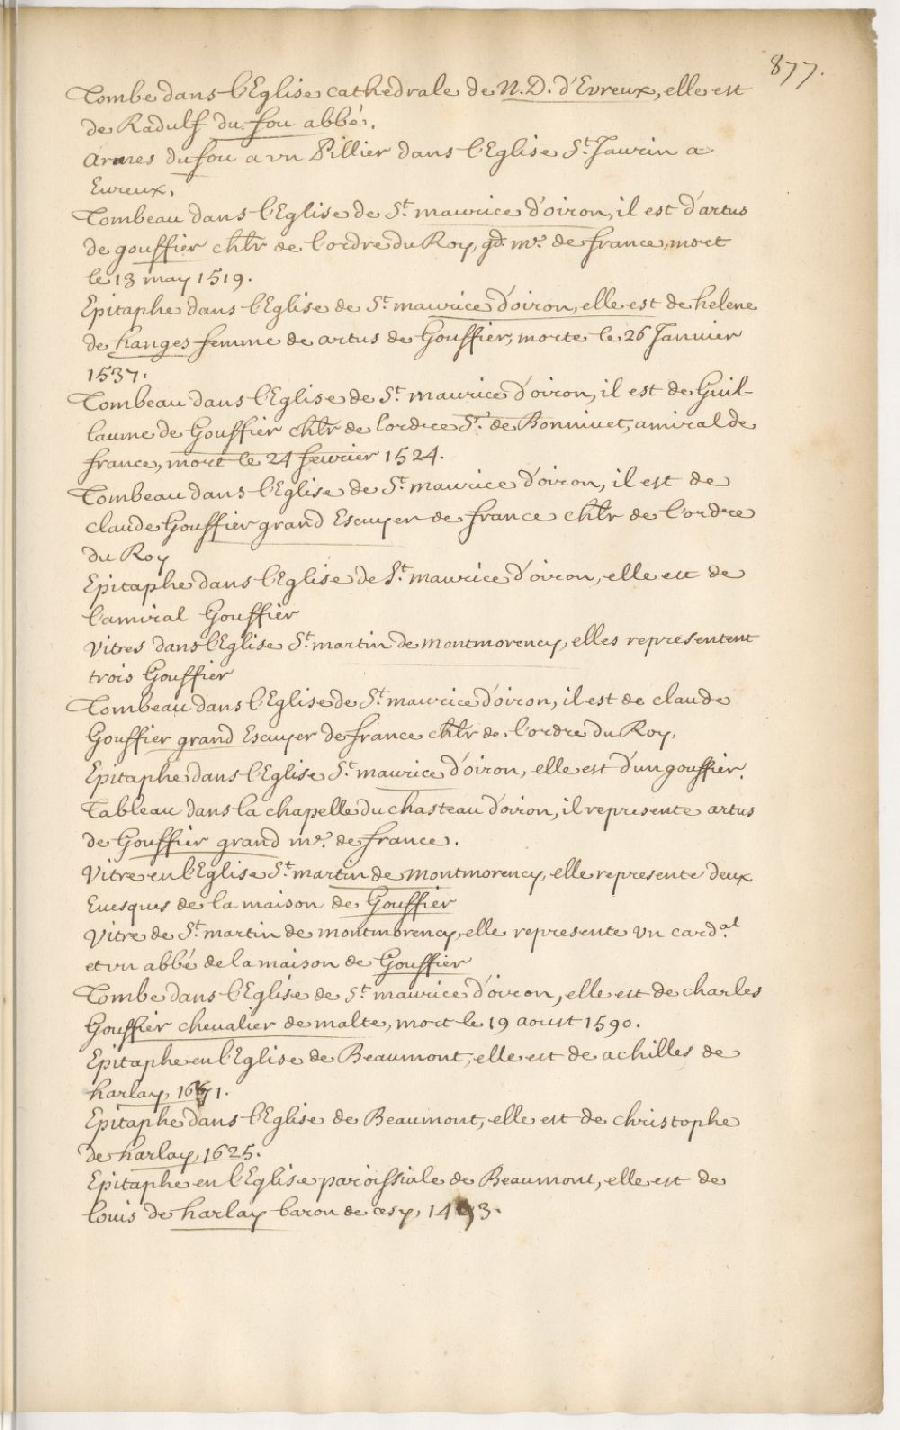 877.
Tombe dans l'Eglise cathedrale de N.D. d'Evreux, elle est
de Radulf du fou abbé.
Armes du fou a vn Pillier dans l'Eglise St. Taurin a
Evreux.
Tombeau dans l'Eglise de St. maurice d'oiron, il est d'artus
de gouffier chlr de l'ordre du Roy, gd. me. de france, mort
le 13 may 1519.
Epitaphe dans l'Eglise de St. maurice d'oiron, elle est de helene
de hanges femme de artus de Gouffier, morte le 26 Janvier
1537.
Tombeau dans l'Eglise de St. maurice d'oiron, il est de Guil-
laume de Gouffier chlr de l'ordre Sr. de Bonnivet, amiral de
france, mort le 24 fevrier 1524.
Tombeau dans l'Eglise de St. maurice d'oiron, il est de
claude Gouffier grand Escuyer de france chlr de l'ordre
du Roy
Epitaphe dans l'Eglise de St. maurice d'oiron, elle est de
l'amiral Gouffier
Vitres dans l'Eglise St. martin de montmorency, elles representent
trois Gouffier
Tombeau dans l'Eglise de St. maurice d'oiron, il est de claude
Gouffier grand Escuyer de france chlr de l'ordre du Roy.
Epitaphe dans l'Eglise St. maurice d'oiron, elle est d'un gouffier.
Tableau dans la chapelle du chasteau d'oiron, il represente artus
de Gouffier grand me. de france.
Vitre en l'Eglise St. martin de montmorency, elle represente deux
Evesques de la maison de Gouffier
Vitre de St. martin de montmorency, elle represente vn card.al
et vn abbé de la maison de Gouffier
Tombe dans l'Eglise de St. maurice d'oiron, elle est de charles
Gouffier chevalier de malte, mort le 19 aoust 1590.
Epitaphe en l'Eglise de Beaumont, elle est de achilles de
harlay
Epitaphe dans l'Eglise de Beaumont, elle est de christophe
de harlay 1625.
Epitaphe en l'Eglise paroissiale de Beaumont, elle est de
louis de harlay baron de cesy